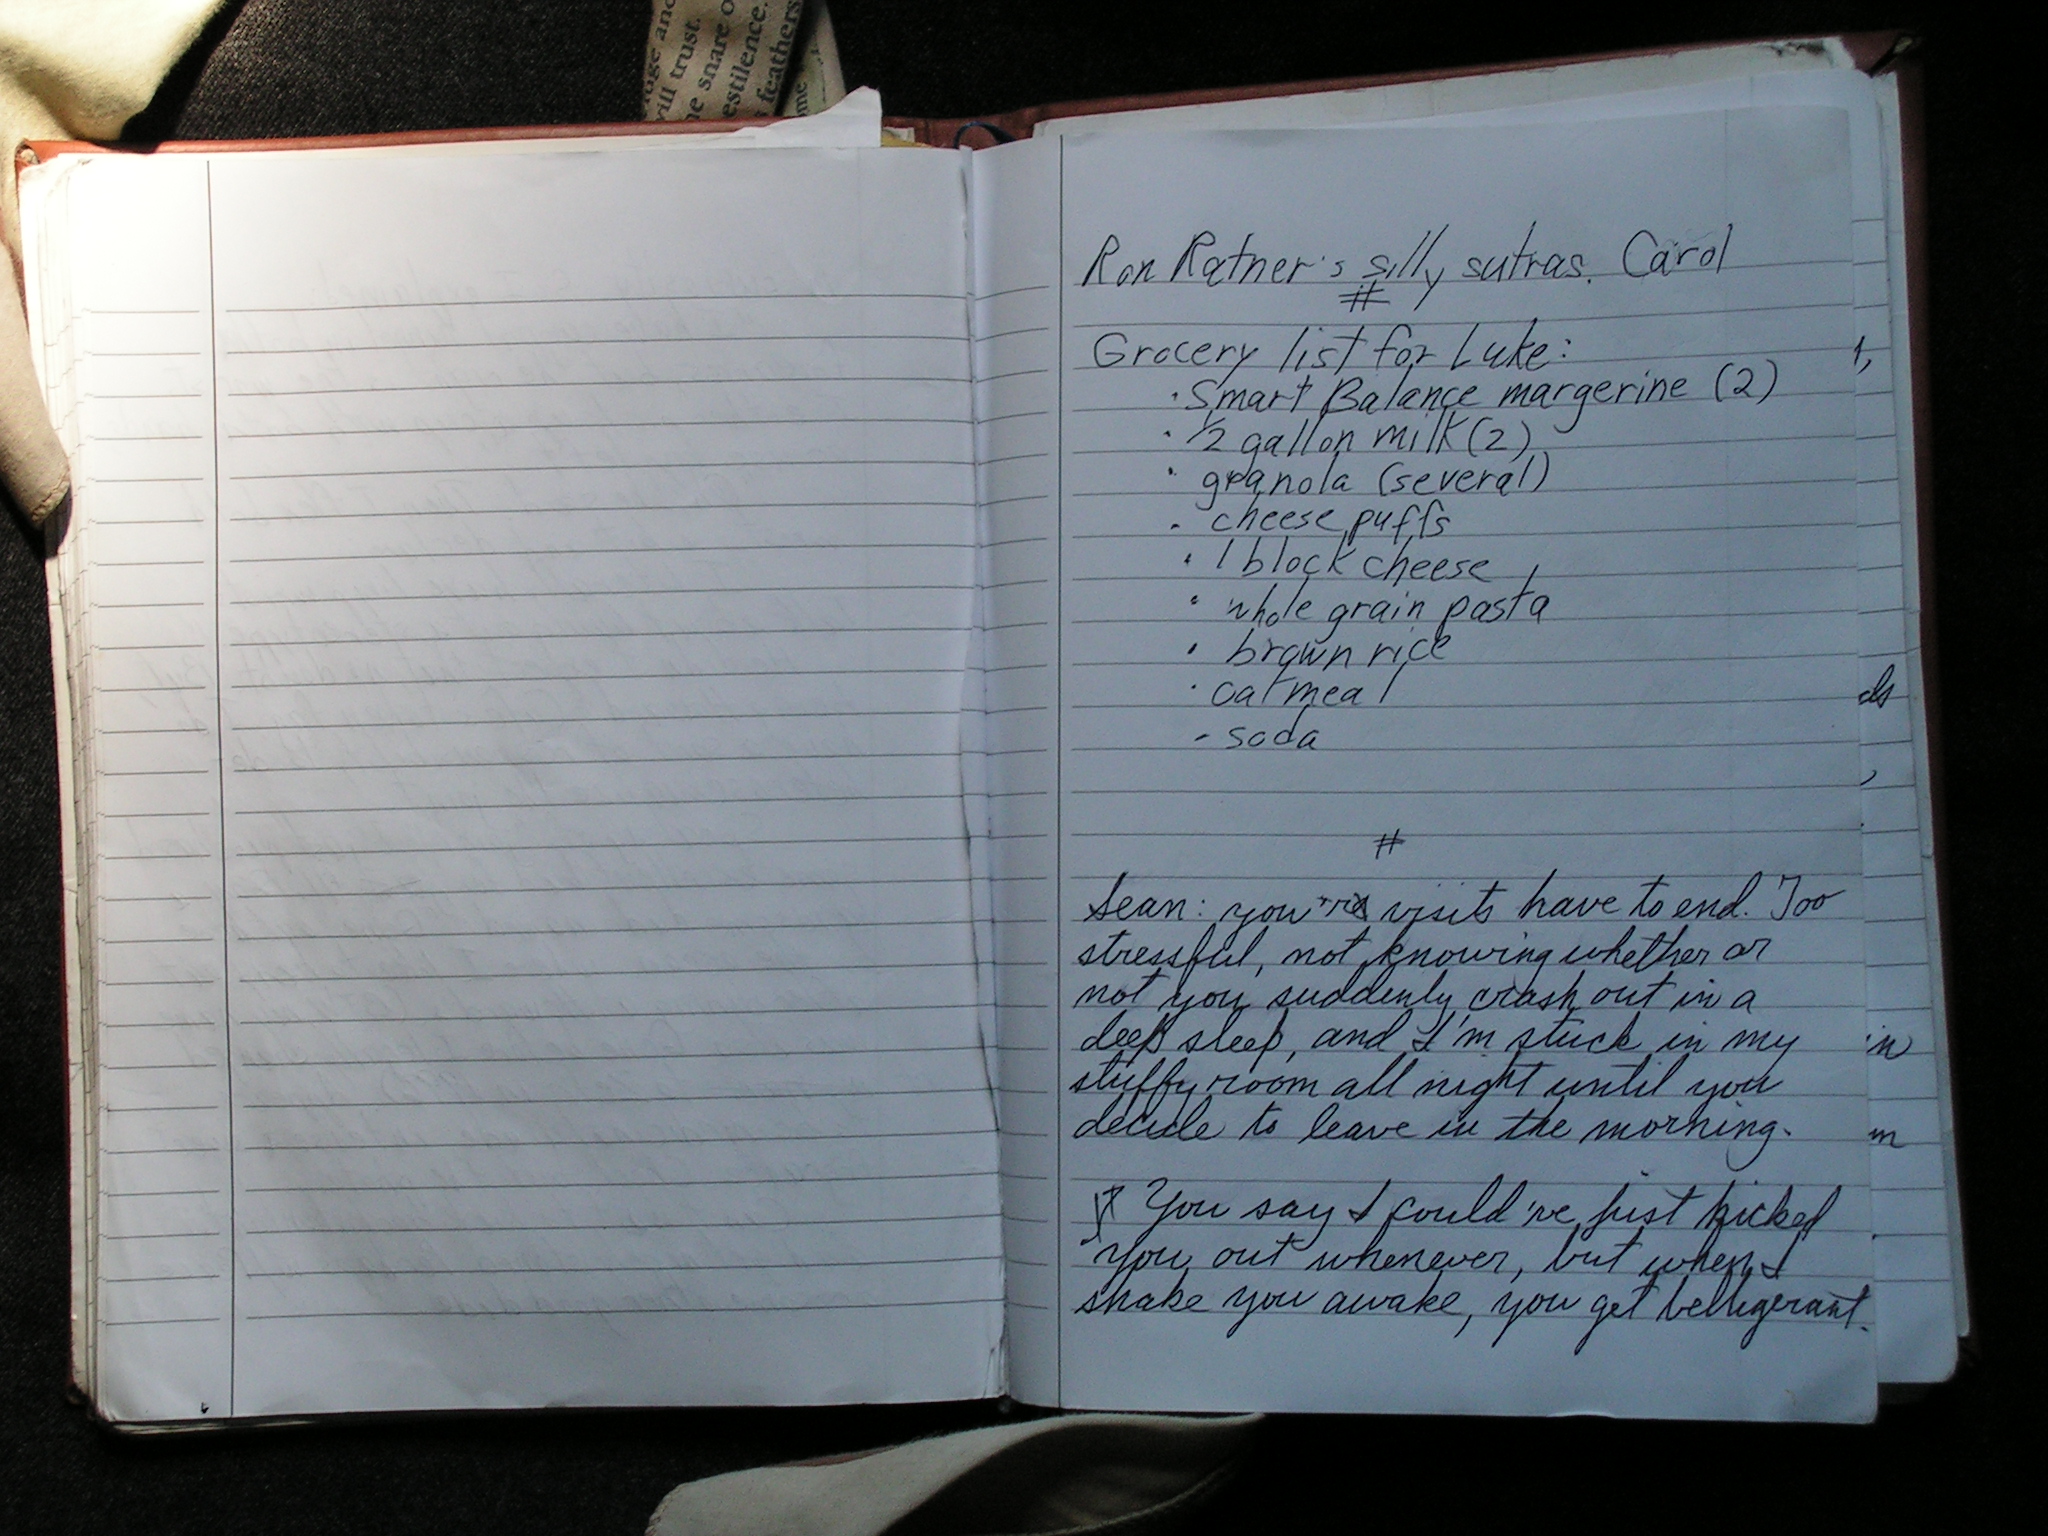 uge and
will trust.
he snare o
estilence.
feathers
ome
Ron Ratner's silly sutras. Carol
#
Grocery list for Luke:
· Smart Balance margerine (2)
· 1/2 gallon milk (2)
· granola (several)
· cheese puffs
· 1 block cheese
· whole grain pasta
· brown rice
· oatmeal
- soda
#
Sean: you're visits have to end. Too
stressful, not knowing whether or
not you suddenly crash out in a
deep sleep, and I'm stuck in my
stuffy room all night until you
decide to leave in the morning.
You say I could've just kicked
you out whenever, but when I
shake you awake, you get belligerant.
ds
in
m